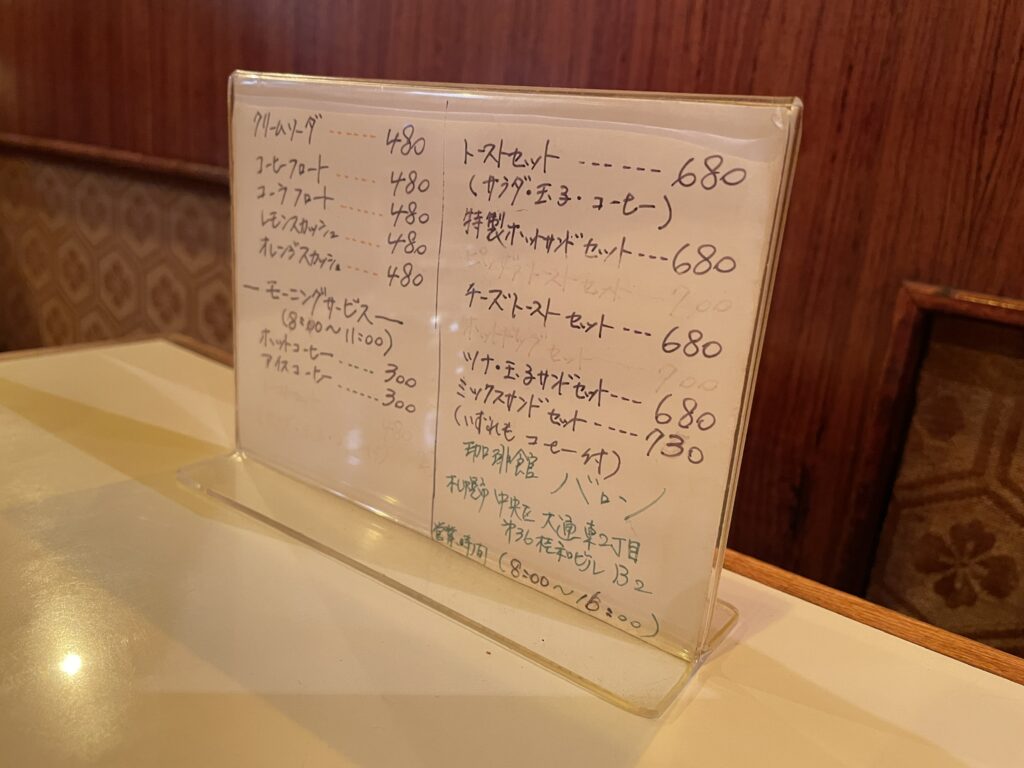 クリームソーダ ------ 480
コーヒーフロート ----- 480
コーラフロート ---- 480
レモンスカッシュ ---- 480
オレンジスカッシュ --- 480
― モーニングサービス ―
(8:00〜11:00)
ホットコーヒー ----- 300
アイスコーヒー ------ 300
480
トーストセット ------ 680
(サラダ・玉子・コーヒー)
特製ホットサンドセット --- 680
ピザトーストセット --- 700
チーズトーストセット --- 680
ホットドッグセット --- 700
ツナ・玉子サンドセット --- 680
ミックスサンドセット --- 730
(いずれもコーヒー付)
珈琲館 バロン
札幌市中央区大通東2丁目
第36桂和ビル B2
営業時間 (8:00〜16:00)